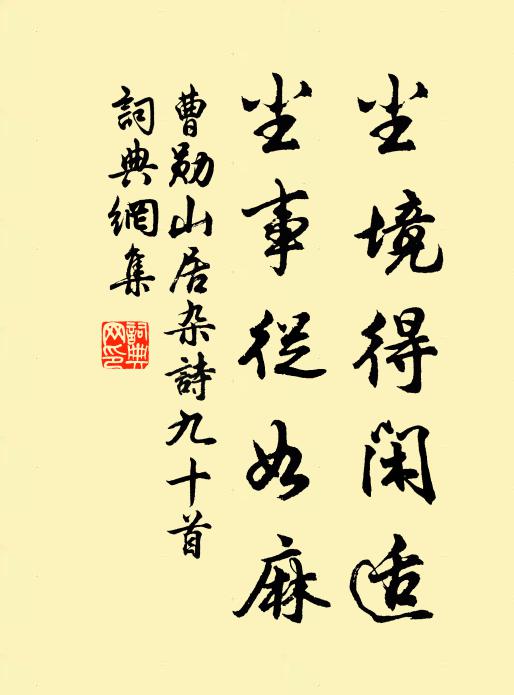 尘境得闲适
尘事从如麻
曹勋山居杂詩九十首
詞典網集
詞典
网印